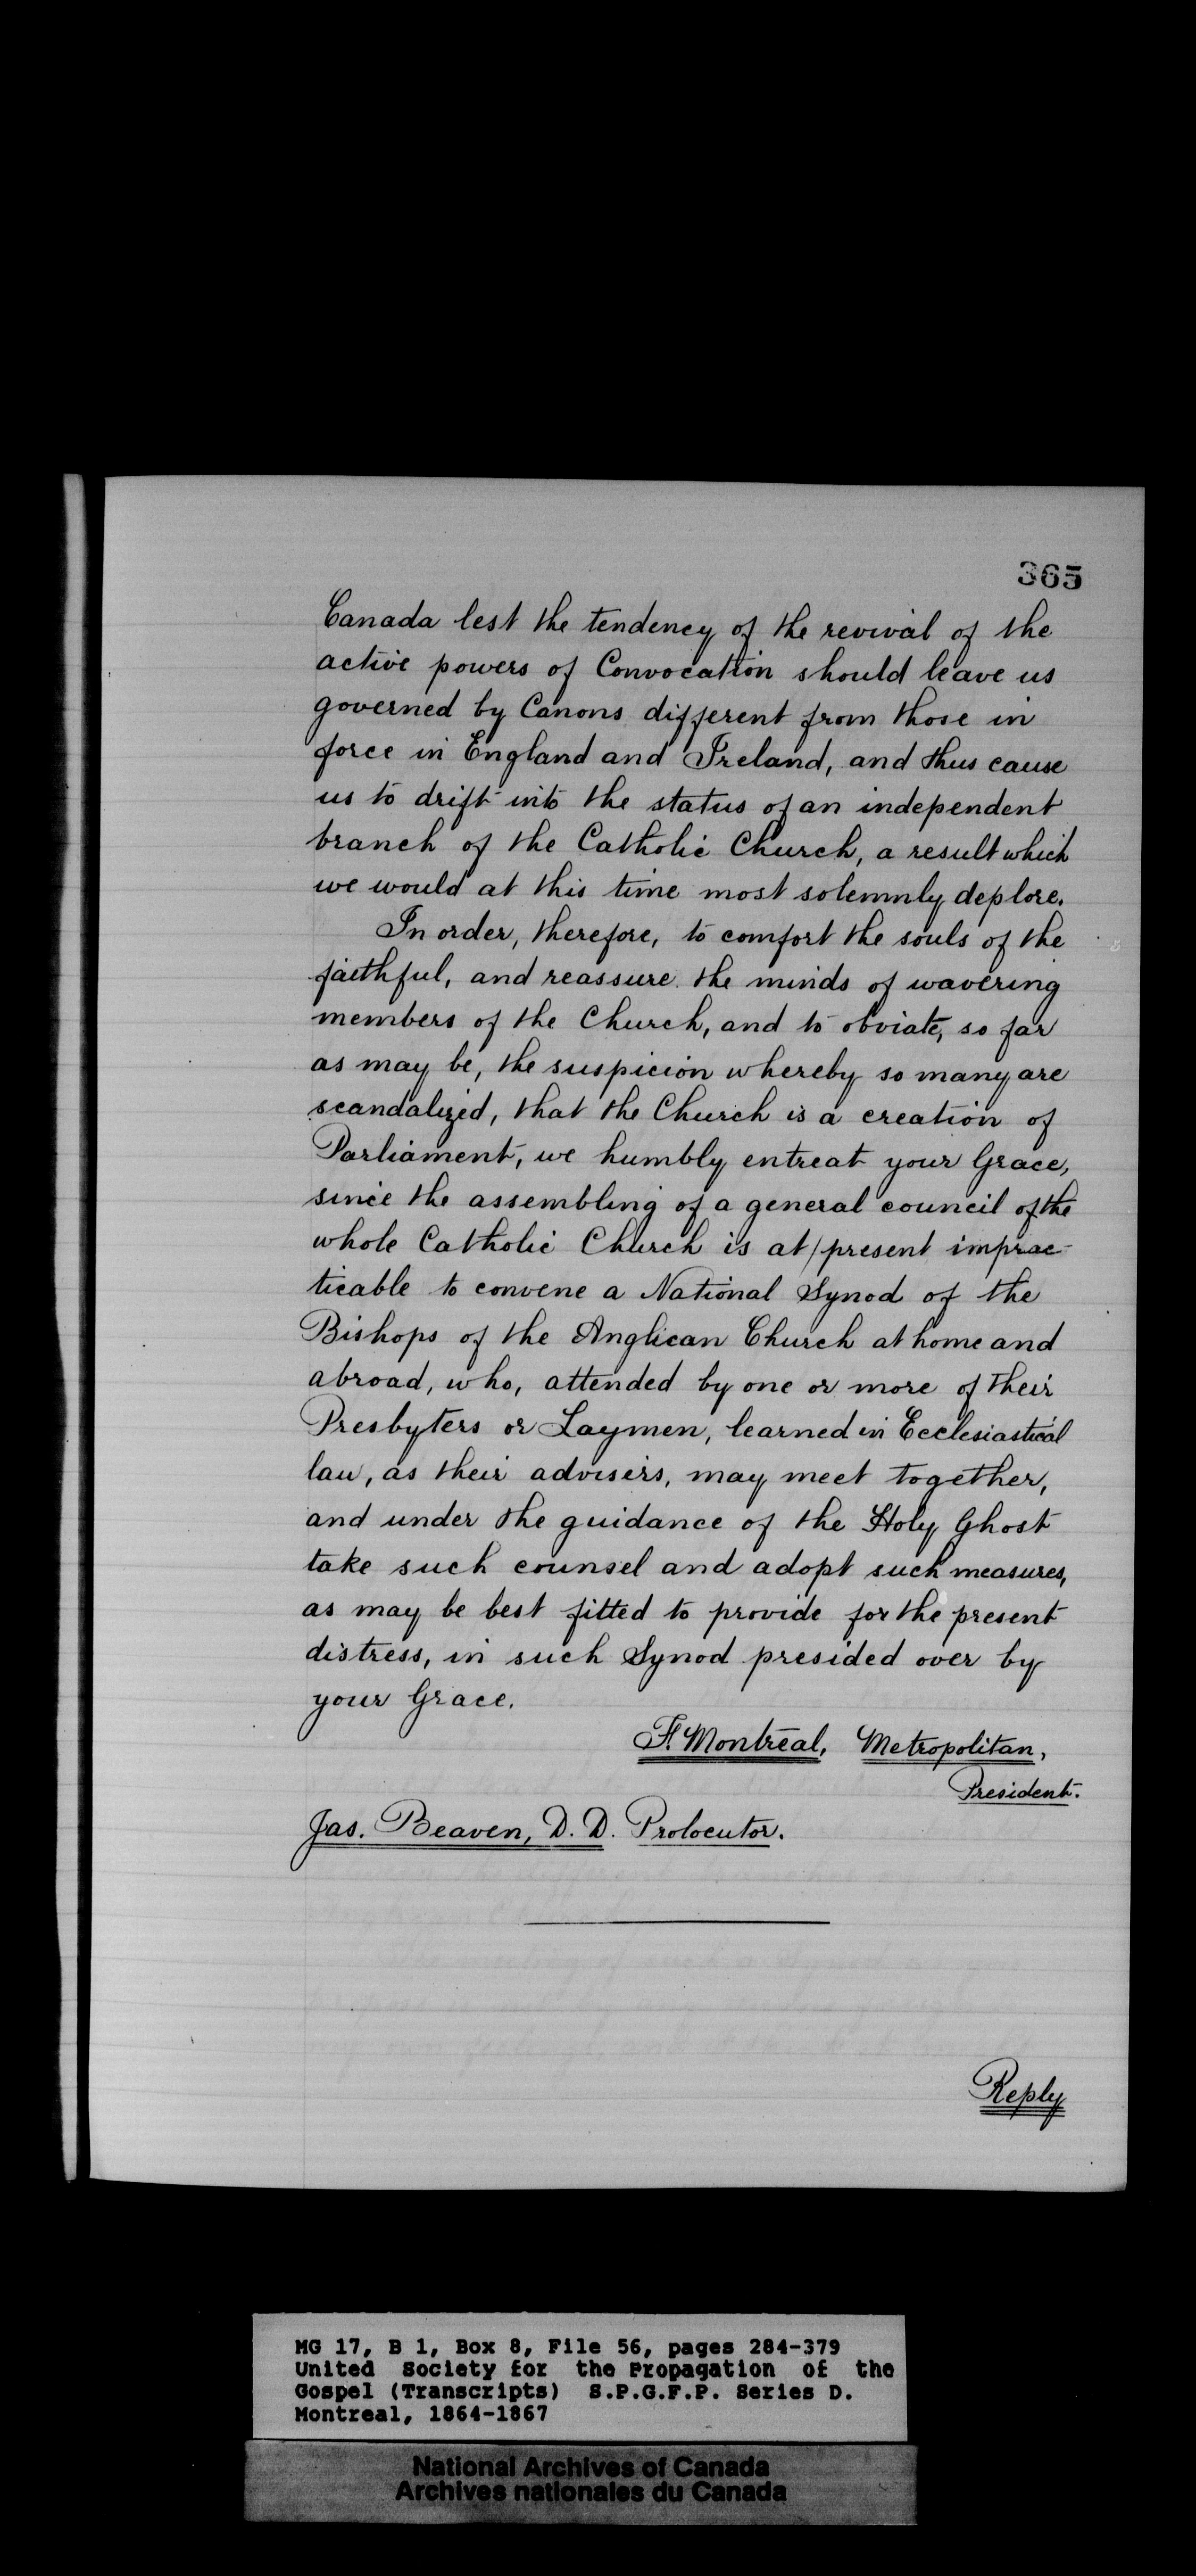 365
Canada lest the tendency of the revival of the
active powers of Convocation should leave us
governed by Canons different from those in
force in England and Ireland, and thus cause
us to drift into the status of an independent
branch of the Catholic Church, a result which
we would at this time most solemnly deplore.
In order, therefore, to comfort the souls of the
faithful, and reassure the minds of wavering
members of the Church, and to obviate, so far
as may be, the suspicion whereby so many are
scandalized, that the Church is a creation of
Parliament, we humbly entreat your Grace,
since the assembling of a general council of the
whole Catholic Church is at/present imprac-
ticable to convene a National Synod of the
Bishops of the Anglican Church at home and
abroad, who, attended by one or more of their
Presbyters or Laymen, learned in Ecclesiastical
law, as their advisers, may meet together,
and under the guidance of the Holy Ghost
take such counsel and adopt such measures,
as may be best fitted to provide for the present
distress, in such Synod presided over by
your Grace.
F. Montreal, Metropolitan,
President.
Jas. Beaven, D. D. Prolocutor.
Reply
MG 17, B 1, Box 8, File 56, pages 284-379
United Society for the Propagation of the
Gospel (Transcripts) S.P.G.F.P. Series D.
Montreal, 1864-1867
National Archives of Canada
Archives nationales du Canada